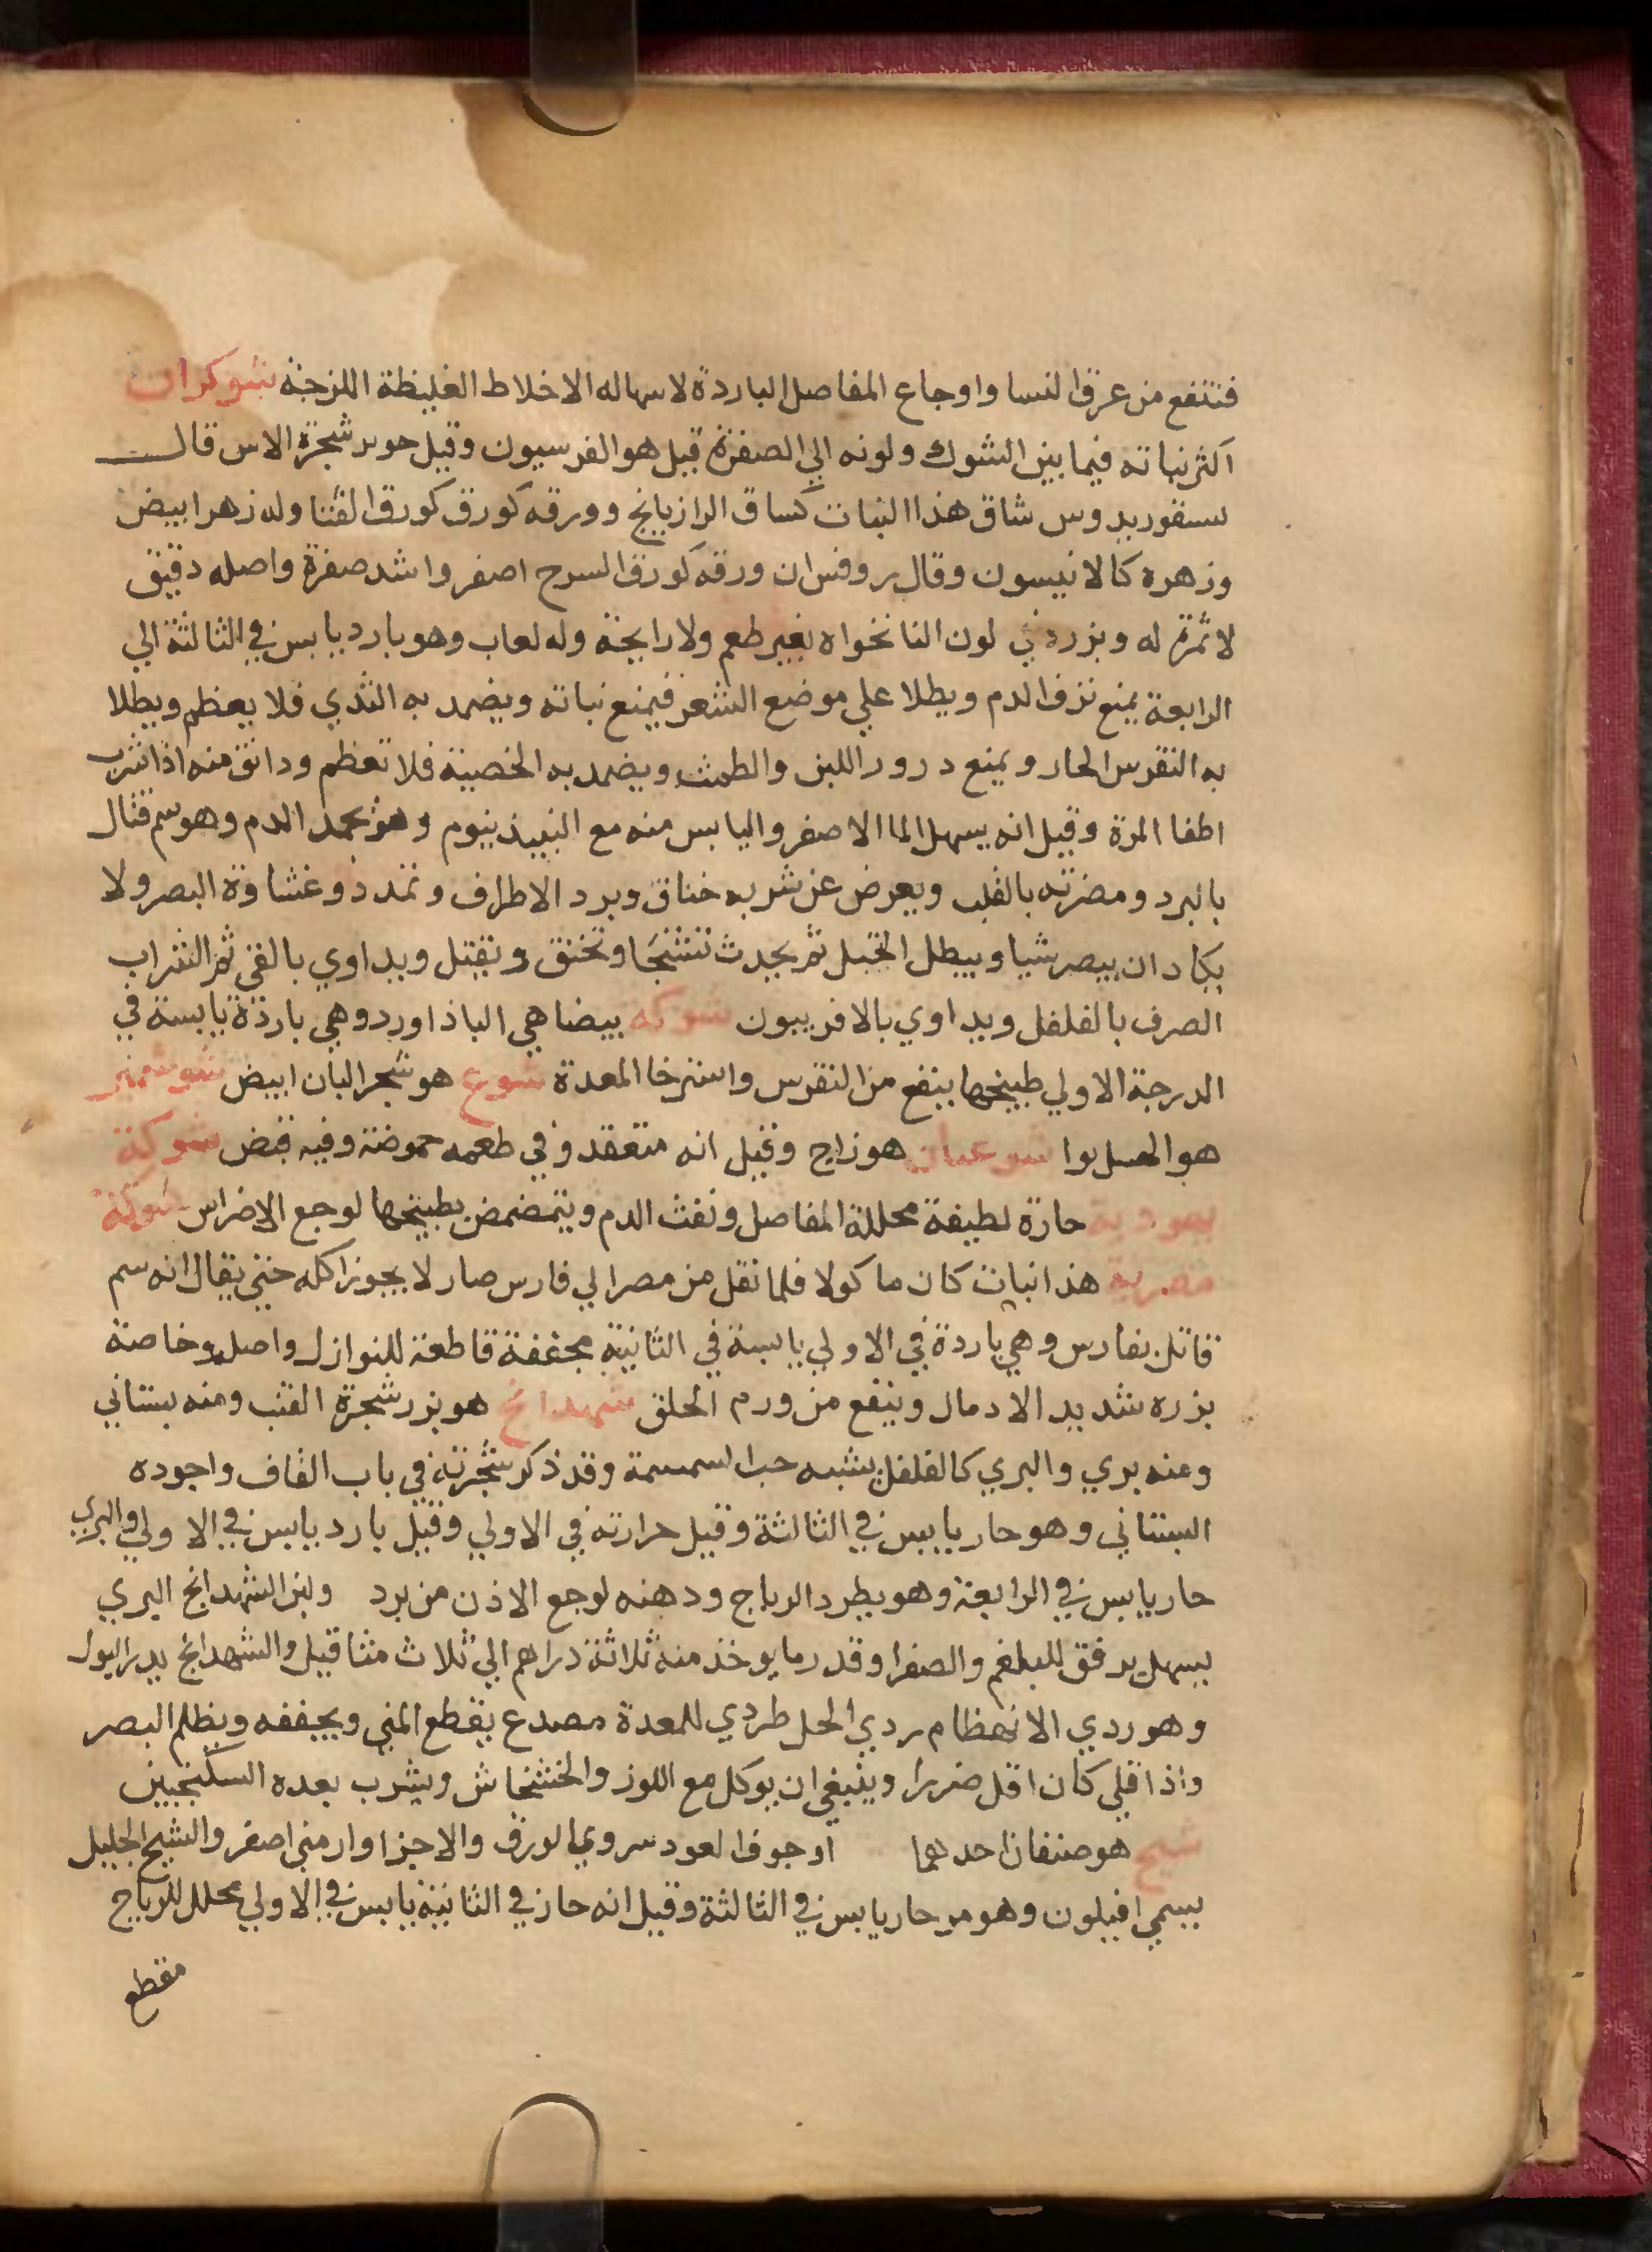 فتنفع من عرق النسا واوجاع المفاصل الباردة لاسهاله الاخلاط الغليظة اللزجة شوكران
اكثر نباته فيما بين الشوك ولونه الي الصفرة قيل هو الفرسيون وقيل شجرة الاس قال
سقوريدوس شاق هذا النبات كساق الرازيانج وورقه كورق كورق القثا وله زهر ابيض
وزهره كالانيسون وقال روفس ان ورقه كورق اصفر واشد صفرة واصله دقيق
لا ثمرة له وبزره في لون النانخواه بغير طعم ولا رايحة وله لعاب وهو بارد يابس في الثالثة الي
الرابعة يمنع نزف الدم ويطلا علي موضع الشعر فيمنع نباته ويضمد به الثدي فلا يعظم ويطلا
به النقرس الحار ويمنع درور اللبن والطمث ويضمد به الخصية فلا تعظم ودانق منه اذا شرب
اطفا المرة وقيل انه يسهل الما الاصفر واليابس منه مع النبيذ ينوم وهو يجمد الدم وهو سم قتال
بالبرد ومضرته بالقلب ويعرض عن شربه خناق وبرد الاطراف وتمدد وغشاوة البصر ولا
يكاد ان يبصر شيا ويبطل ثم يحدث تشنجا وتخنق وتقتل ويداوي بالقي ثم الشراب
الصرف بالفلفل ويداوي بالافربيون شوكه بيضا هي الباذاورد وهي باردة يابسة في
الدرجة الاولي طبيخها ينفع من النقرس واسترخا المعدة شوع هو شجر البان ابيض شوشمير
هو شوعبان هو زاج وقيل انه متعقد وفي طعمه حموضة وفيه قبض شوكة
يهودية حارة لطيفة محللة المفاصل ونفث الدم ويتمضمض بطبيخها لوجع الاضراس شوكة
مصرية هذا نبات كان ماكولا فلما نقل من مصر الي فارس صار لا يجوز اكله حتي يقال انه سم
قاتل بفارس وهي باردة في الاولي يابسة في الثانية مجففة قاطعة للنوازل واصله وخاصة
بزره شديد الادمال وينفع من ورم الحلق شهدانج هو بزر شجرة القنب ومنه بستاني
ومنه بري والبري كالفلفل يشبه حب السمسمة وقد ذكر شجرته في باب القاف واجوده
البستاني وهو حار يابس في الثالثة وقيل حرارته في الاولي وقيل بارد يابس في الاولي والبري
حار يابس في الرابعة وهو يطرد الرياح ودهنه لوجع الاذن من برد ولبن الشهدانج البري
يسهل برفق للبلغم والصفرا وقدر ما يوخذ منه ثلاثة دراهم الي ثلاث مثاقيل والشهدانج يدر البول
وهو ردي الانهظام ردي الخلط ردي للمعدة مصدع يقطع المني ويجففه ويظلم البصر
واذا قلي كان اقل ضررا وينبغي ان يوكل مع اللوز والخشخاش ويشرب بعده السكنجبين
شيح هو صنفان احدهما اوجوف العود سروي الورق والاخر ارمني اصفر والشيح الجليل
يسمي افيلون وهو مر حار يابس في الثالثة وقيل انه حار في الثانية يابس في الاولي محلل للرياح
مقطع